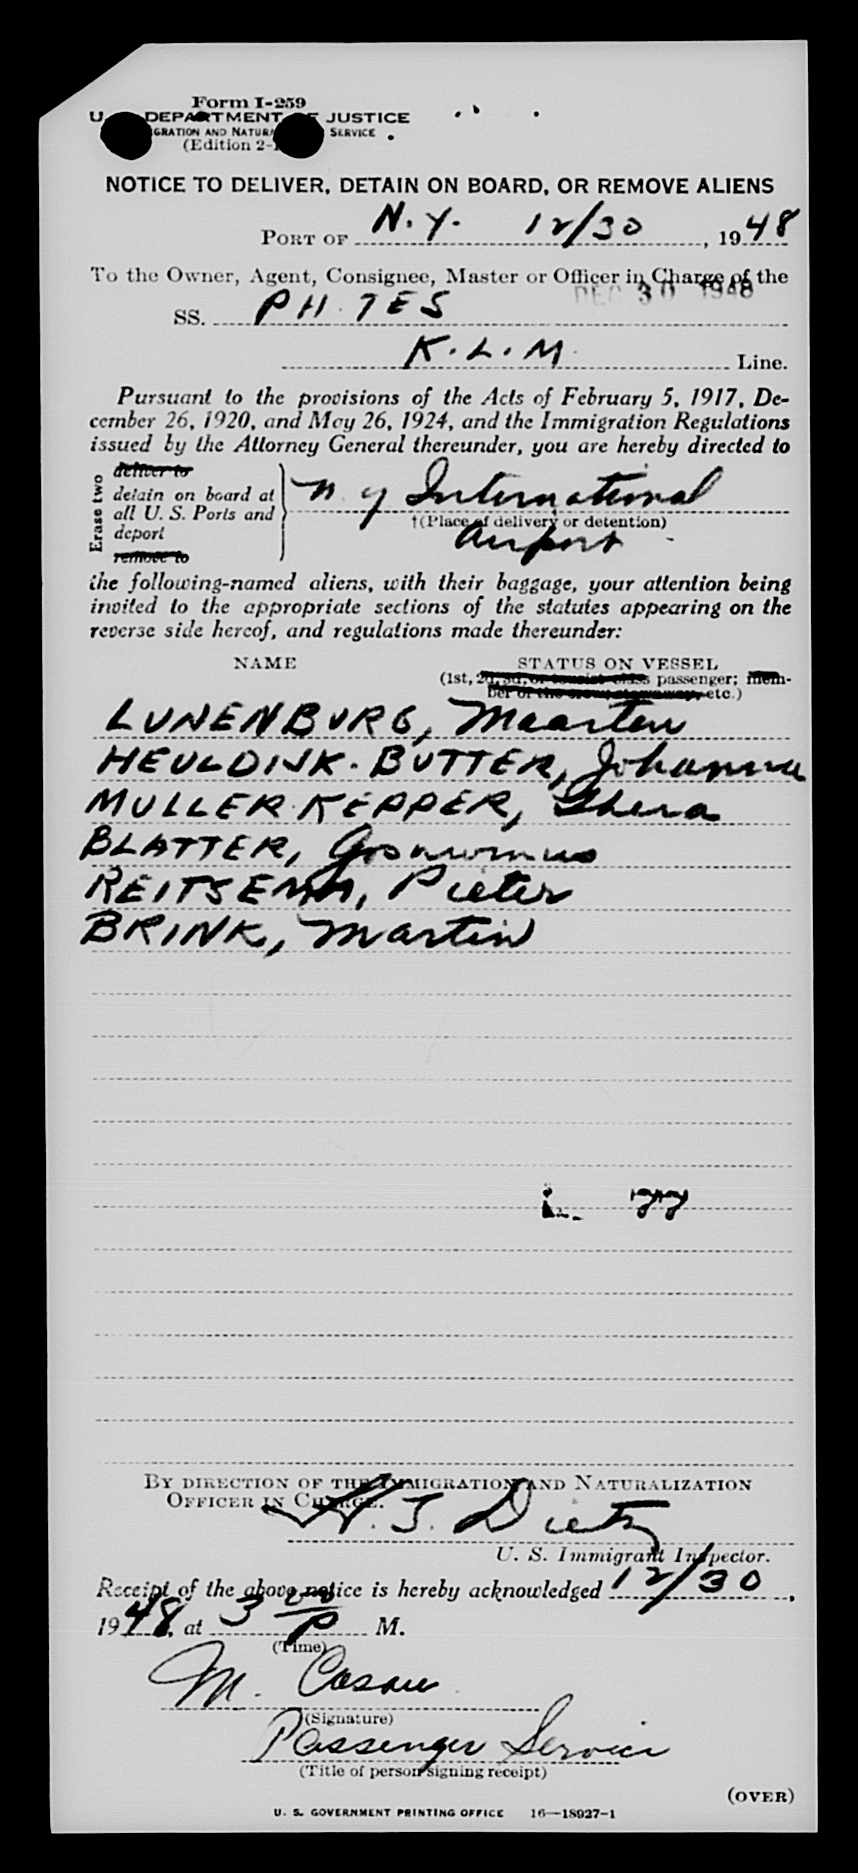 Form I-259
U. DEPARTMENT OF JUSTICE
IGRATION AND NATURA SERVICE
(Edition 2-
NOTICE TO DELIVER, DETAIN ON BOARD, OR REMOVE ALIENS
PORT OF N.Y. 12/30, 1948
To the Owner, Agent, Consignee, Master or Officer in Charge of the
DEC 30 1948
SS. PH. TES
K.L.M. Line.
Pursuant to the provisions of the Acts of February 5, 1917, De-
cember 26, 1920, and May 26, 1924, and the Immigration Regulations
issued by the Attorney General thereunder, you are hereby directed to
Erase two
deliver to
detain on board at
all U. S. Ports and
deport
remove to
N. Y International
†(Place of delivery or detention)
Airport
the following-named aliens, with their baggage, your attention being
invited to the appropriate sections of the statutes appearing on the
reverse side hereof, and regulations made thereunder:
NAME STATUS ON VESSEL
(1st, 2d, 3d, or tourist class passenger; mem-
ber of the crew, stowaway, etc.)
LUNENBURG, Maarten
HEULDIJK-BUTTER, Johanna
MULLER-KEPPER, Thera
BLATTER,
REITSEMA, Pieter
BRINK, Martin
77
BY DIRECTION OF THE IMMIGRATION AND NATURALIZATION
OFFICER IN CHARGE.
H. J. Dietz
U. S. Immigrant Inspector.
Receipt of the above notice is hereby acknowledged 12/30,
1948, at 3 00/P M.
(Time)
M. Casau
(Signature)
Passenger Service
(Title of person signing receipt)
(OVER)
U. S. GOVERNMENT PRINTING OFFICE 16—18927-1